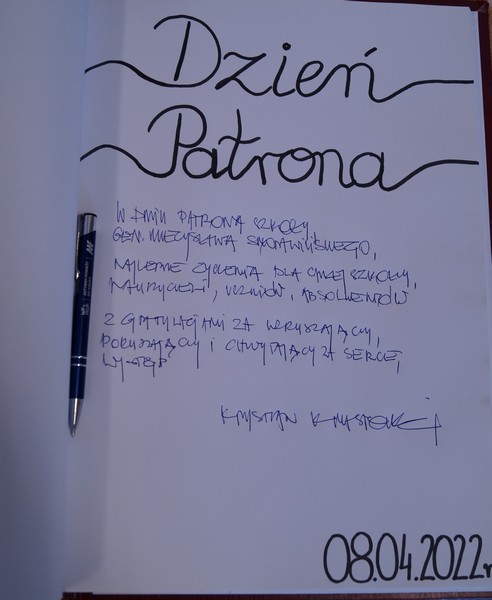 Dzień
Patrona
W DNIU PATRONA SZKOŁY
GEN. MIECZYSŁAWA SMORAWIŃSKIEGO,
NAJLEPSZE ŻYCZENIA DLA CAŁEJ SZKOŁY,
NAUCZYCIELI, UCZNIÓW, ABSOLWENTÓW
Z GRATULACJAMI ZA WZRUSZAJĄCY,
PORUSZAJĄCY I CHWYTAJĄCY ZA SERCE,
WYSTĘP
KRYSTIAN
08.04.2022r